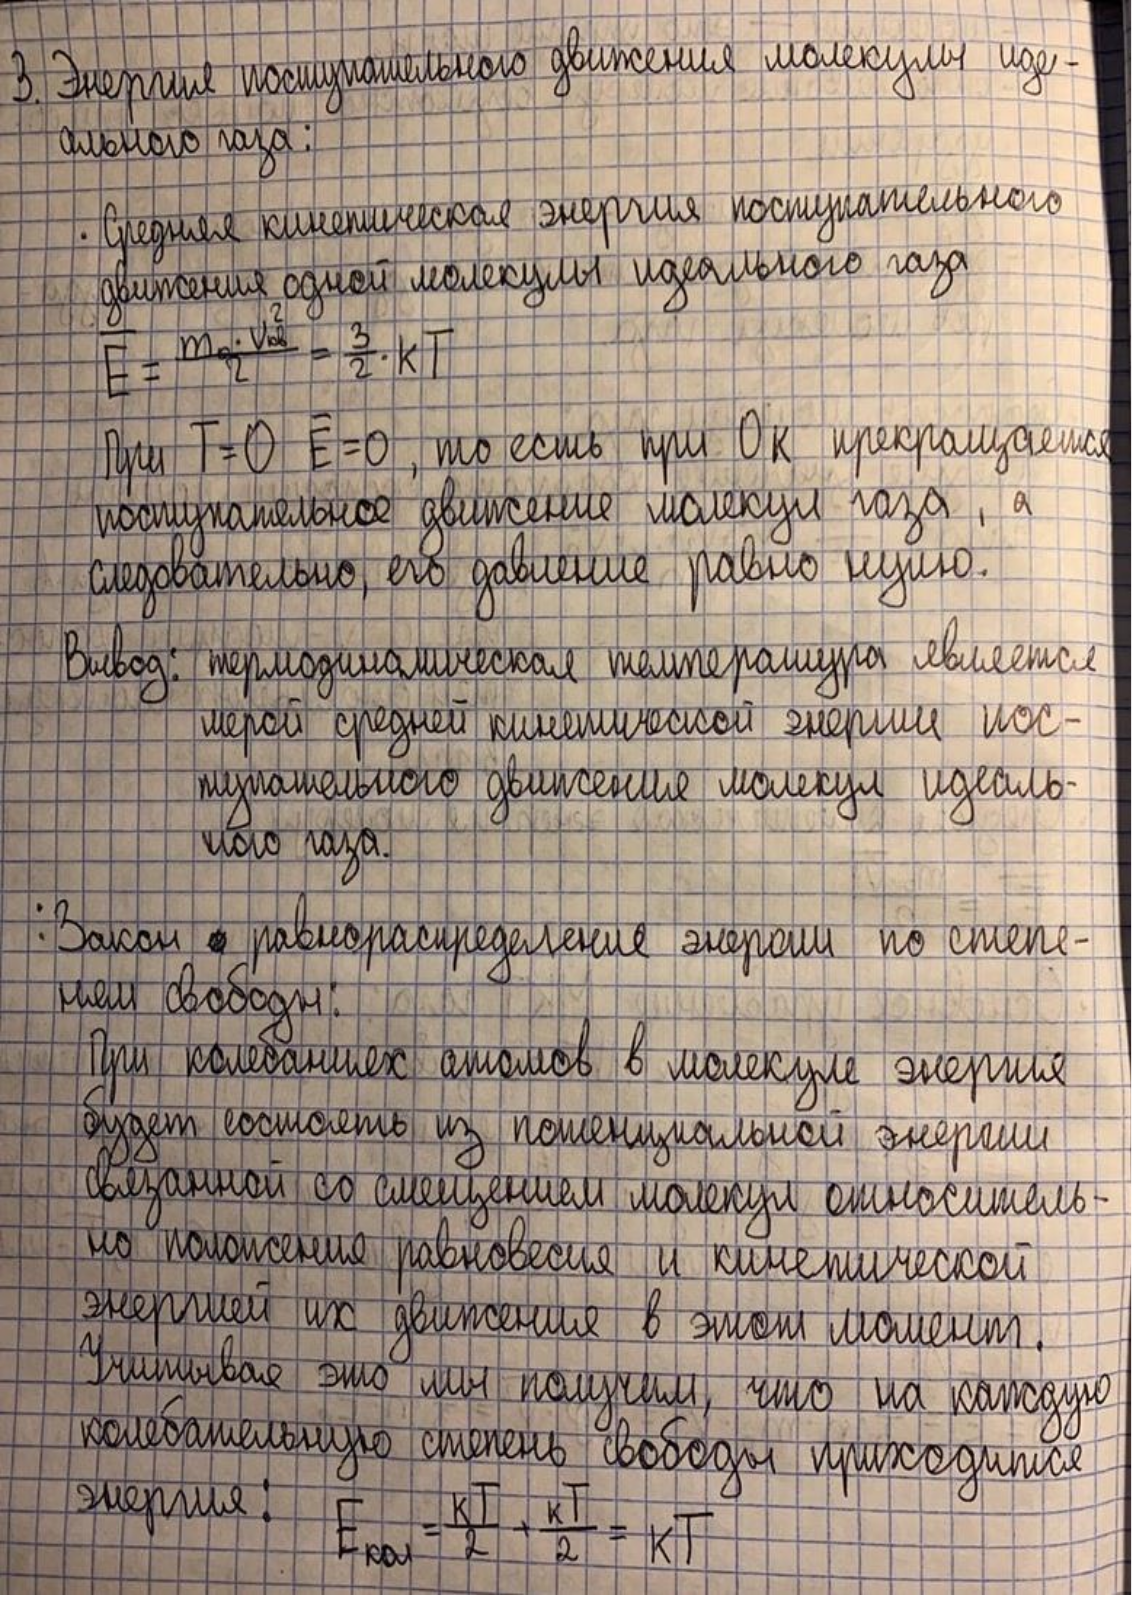 3. Энергия поступательного движения молекулы иде-
ального газа:
· Средняя кинетическая энергия поступательного
движения одной молекулы идеального газа
Ē = m₀·v_кв²/2 = 3/2·kT
При T=0 Ē=0, то есть при 0К прекращается
поступательное движение молекул газа, а
следовательно, его давление равно нулю.
Вывод: термодинамическая температура является
мерой средней кинетической энергии пос-
тупательного движения молекул идеаль-
ного газа.
: Закон равнораспределения энергии по степе-
ням свободы:
При колебаниях атомов в молекуле энергия
будет состоять из потенциальной энергии
связанной со смещением молекул относитель-
но положения равновесия и кинетической
энергией их движения в этот момент.
Учитывая это мы получим, что на каждую
колебательную степень свободы приходится
энергия: E_кол = kT/2 + kT/2 = kT